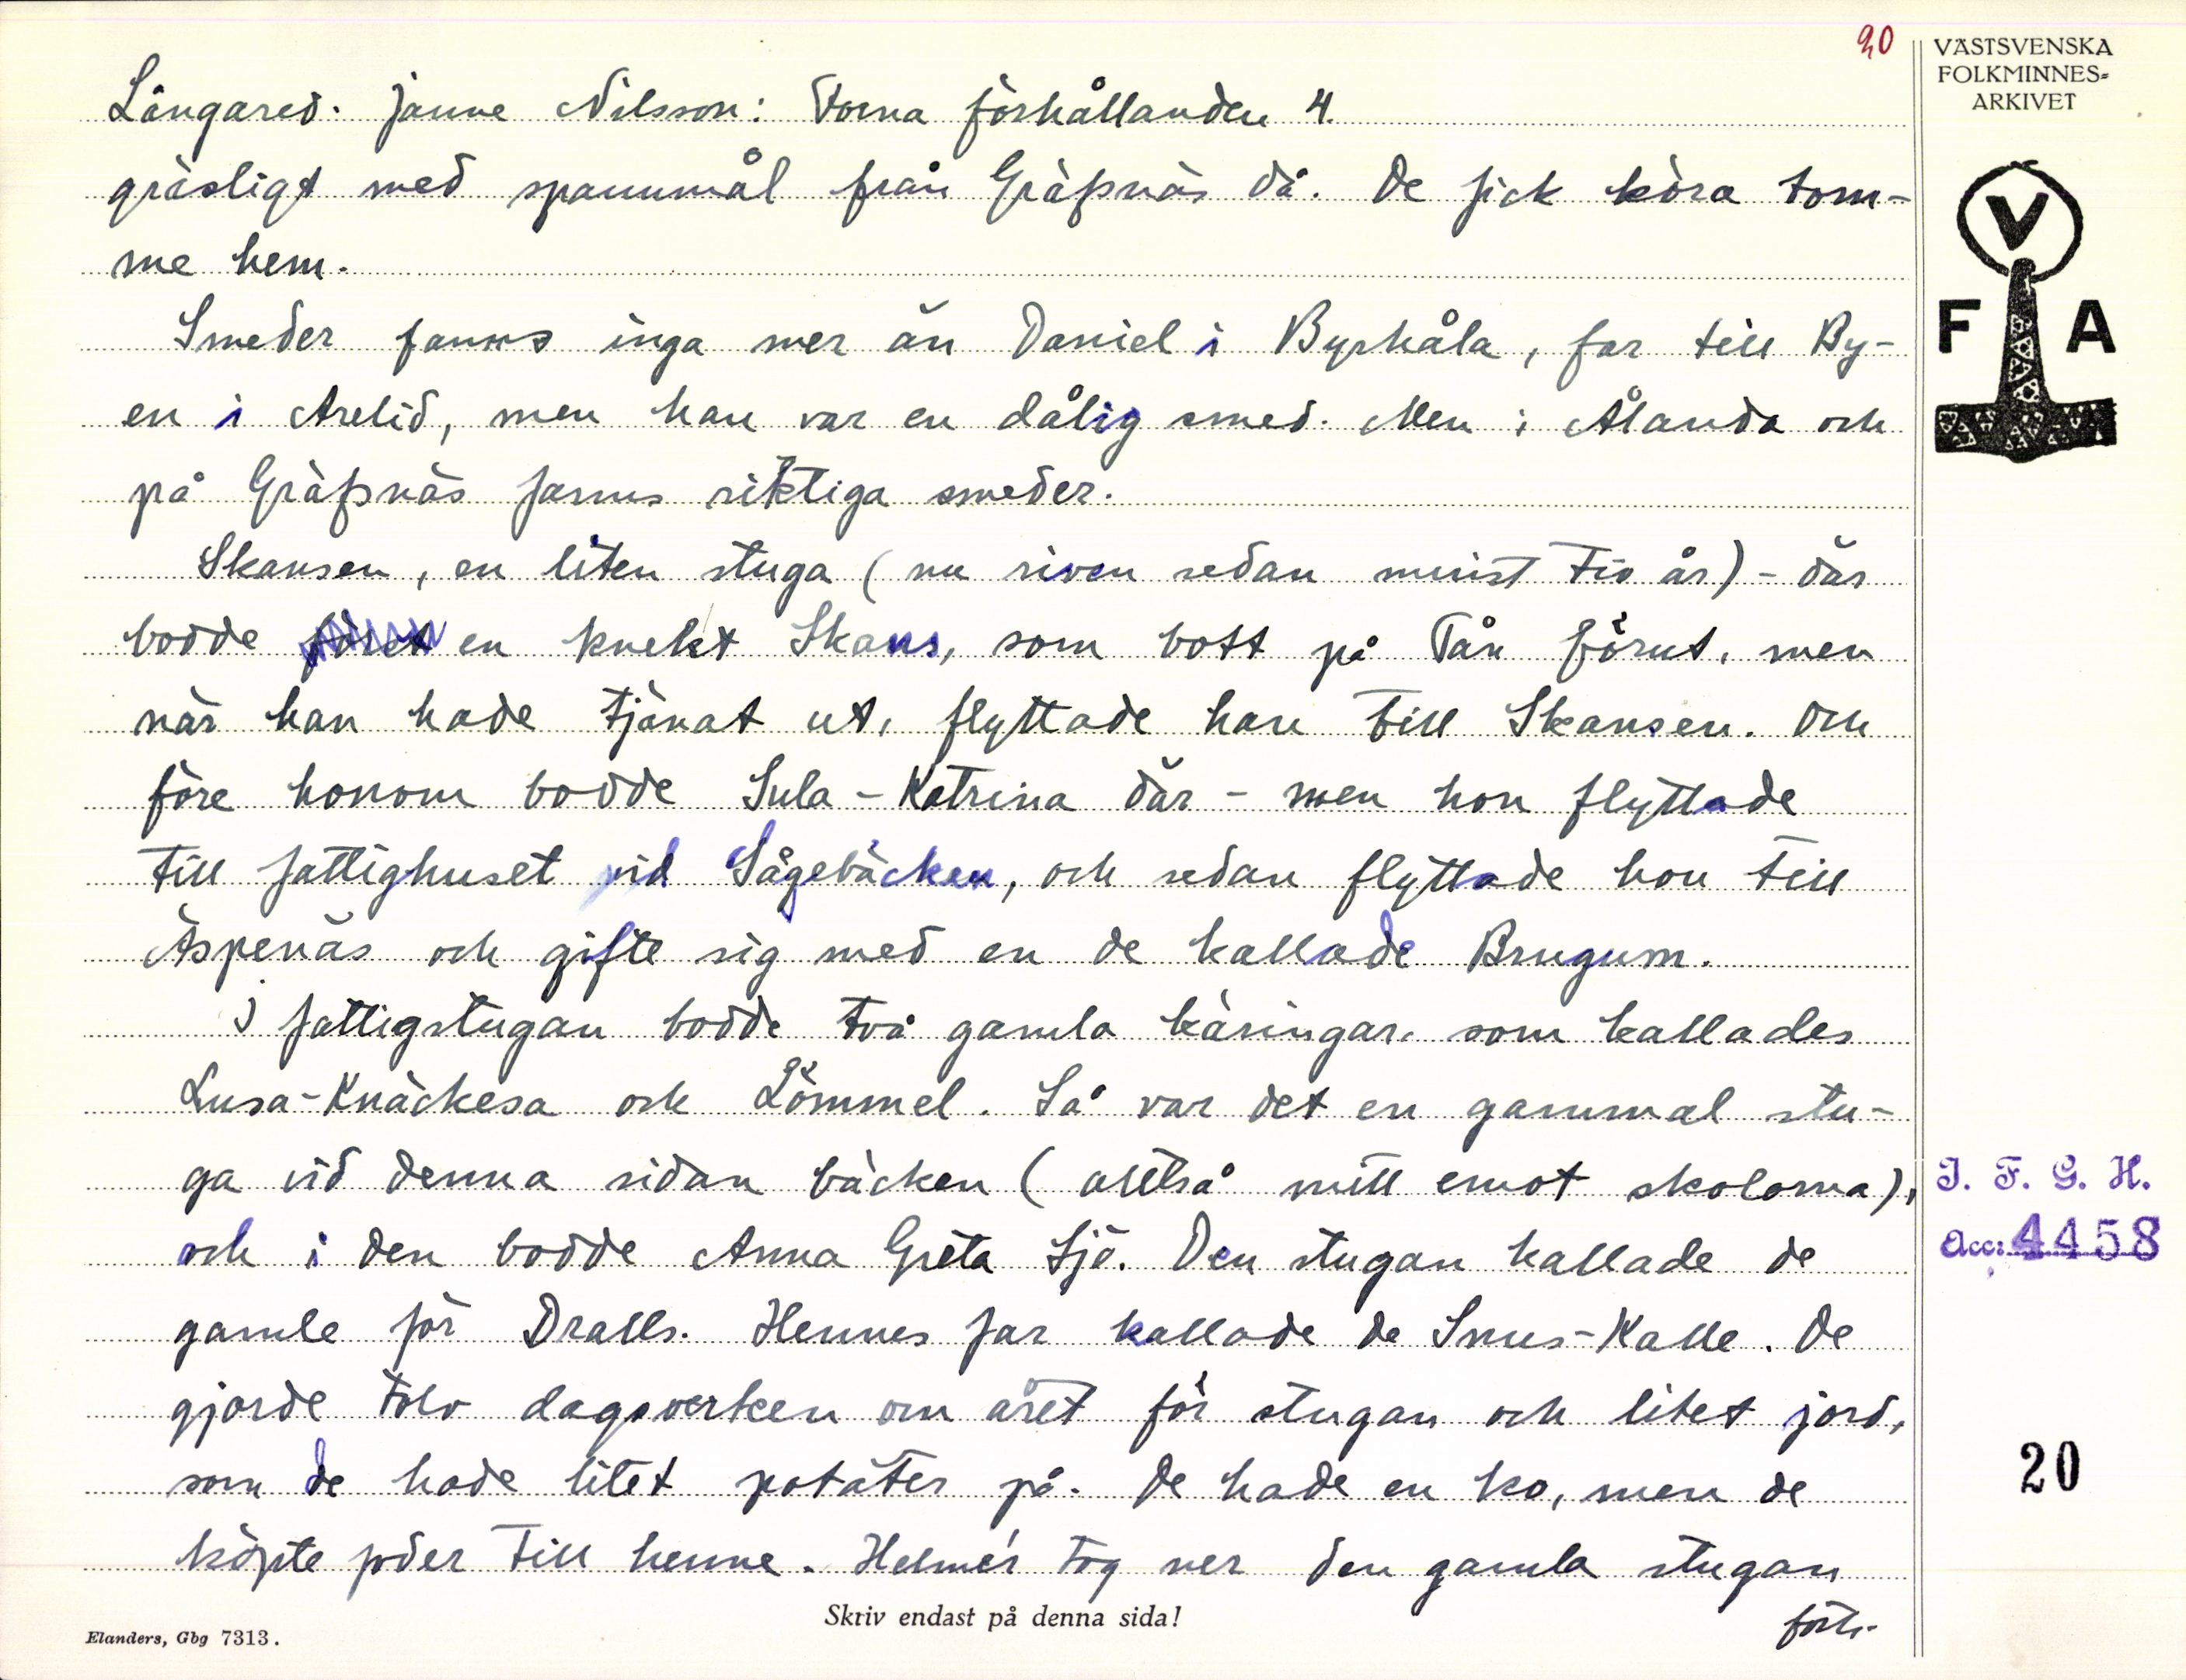 20
VÄSTSVENSKA
FOLKMINNES-
ARKIVET
Långared. Janne Nilsson: Forna förhållanden 4.
gräsligt med spannmål från Gräfsnäs då. De fick köra tom-
me hem.
V
F A
Smeder fanns inga mer än Daniel i Byrhåla, far till By-
en i Arelid, men han var en dålig smed. Men i Ålanda och
på Gräfsnäs fanns riktiga smeder.
Skansen, en liten stuga (nu riven sedan minst tio år) - där
bodde en knekt Skans, som bott på Tån förut, men
när han hade tjänat ut, flyttade han till Skansen. Och
före honom bodde Sula-Katrina där - men hon flyttade
till fattighuset vid Sågebäcken, och sedan flyttade hon till
Äspenäs och gifte sig med en de kallade Brugum.
I fattigstugan bodde två gamla käringar, som kallades
Lusa-Knäckesa och Lömmel. Så var det en gammal stu-
ga vid denna sidan bäcken (alltså mitt emot skolorna),
och i den bodde Anna Greta Sjö. Den stugan kallade de
gamle för Dralls. Hennes far kallade de Snus-Kalle. De
gjorde tolv dagsverken om året för stugan och litet jord,
som de hade litet potäter på. De hade en ko, men de
köpte foder till henne. Helmér tog ner den gamla stugan
forts.
I. F. G. H.
Acc: 4458
20
Skriv endast på denna sida!
Elanders, Gbg 7313.